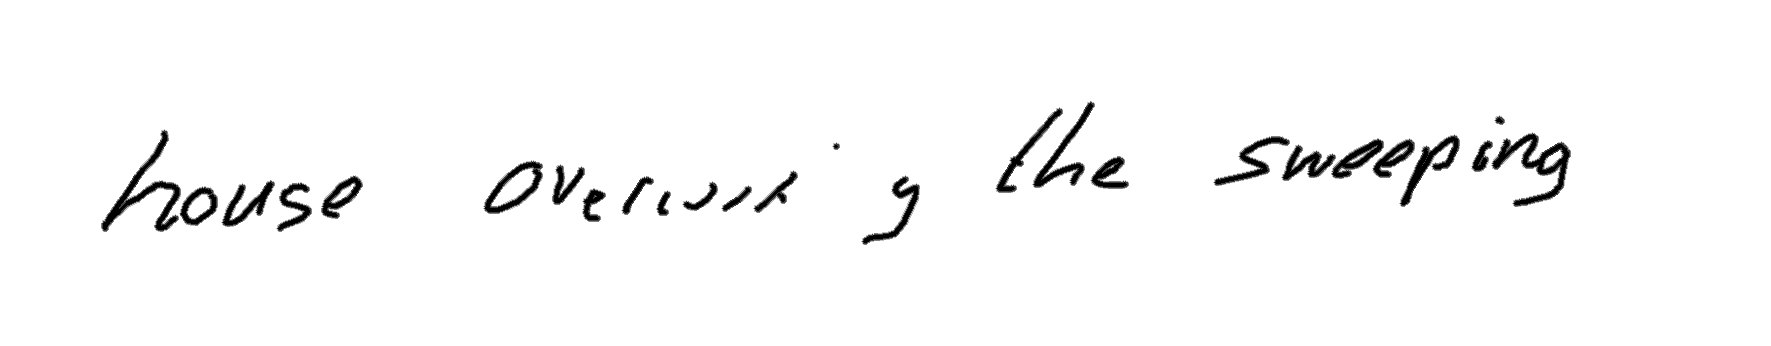 house overlooking the sweeping